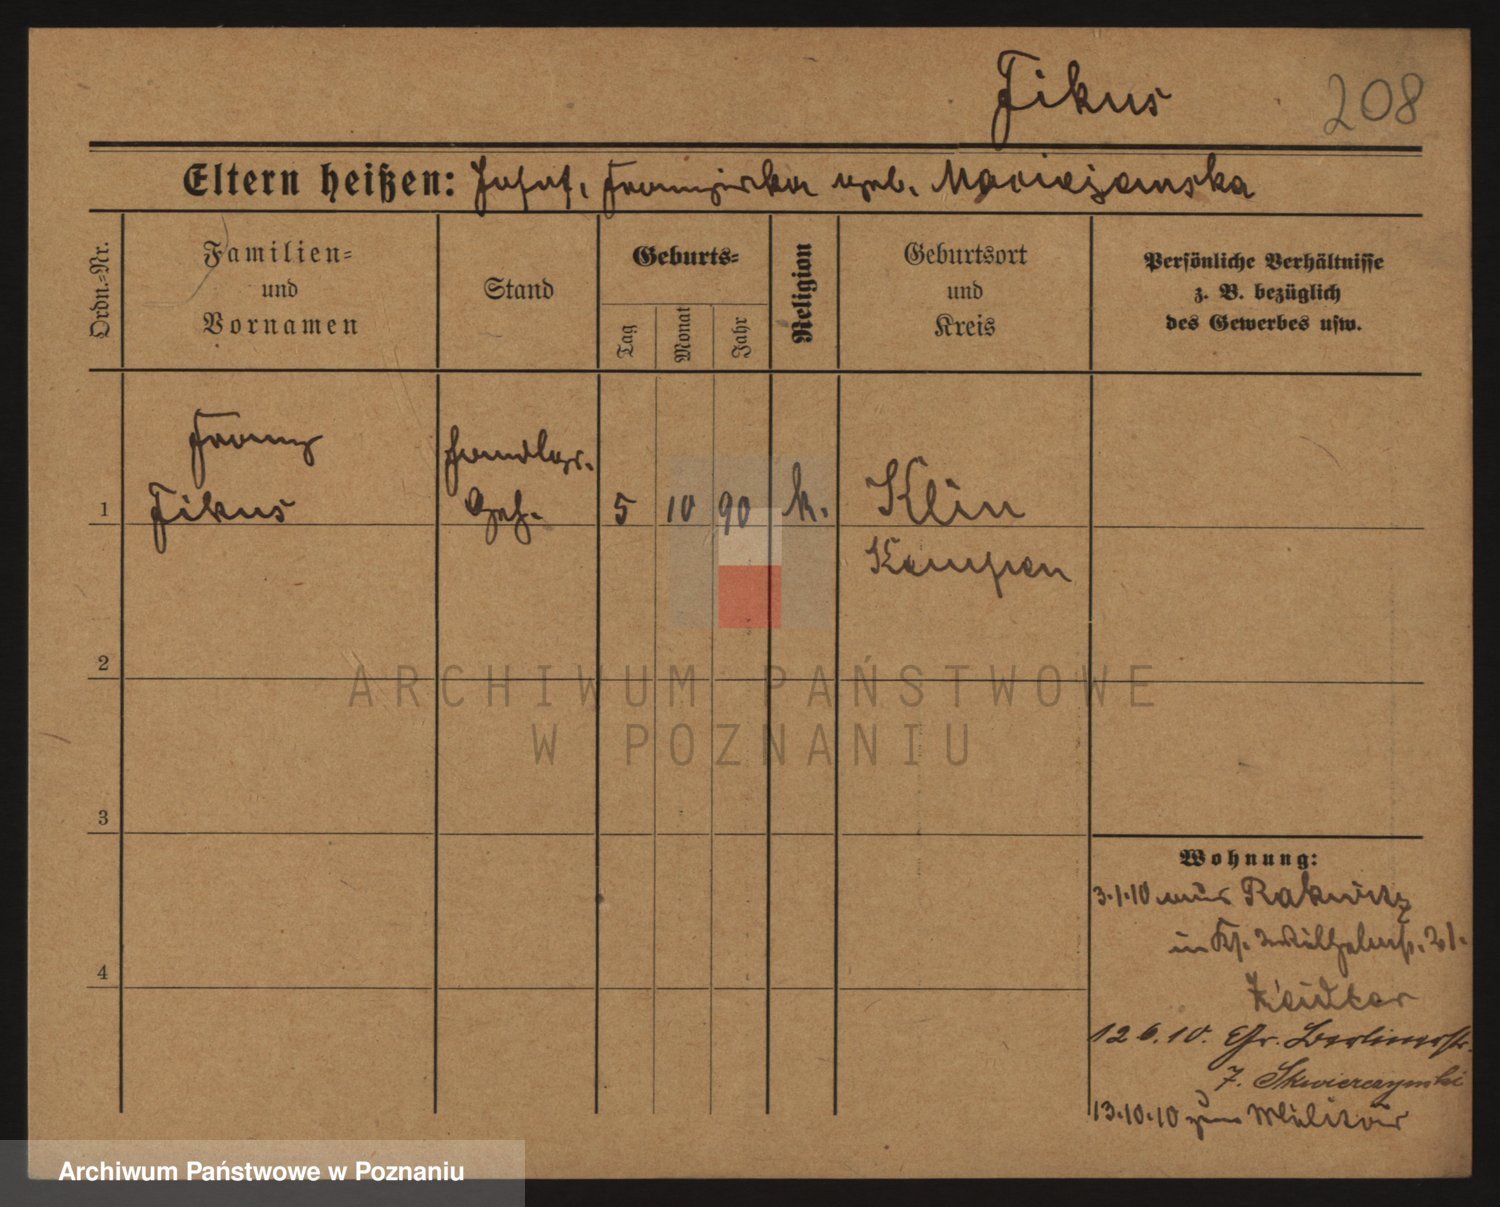 Fikus 208
Eltern heißen: Josef, Franziska geb. Maciejewska
Ordn.-Nr.
Familien-
und
Vornamen
Stand
Geburts-
Tag
Monat
Jahr
Religion
Geburtsort
und
Kreis
Persönliche Verhältnisse
z. B. bezüglich
des Gewerbes usw.
Franz
Fikus
Handlgs.
Geh.
1
5 10 90 k.
Klin
Kempen
2
3
4
Wohnung:
3.1.10 aus Rakwitz
in Wilhelmstr. 21.
12.6.10. Gr. Berlinerstr.
7. Skwierczynski
13.10.10 zum Militär
ARCHIWUM PAŃSTWOWE
W POZNANIU
Archiwum Państwowe w Poznaniu